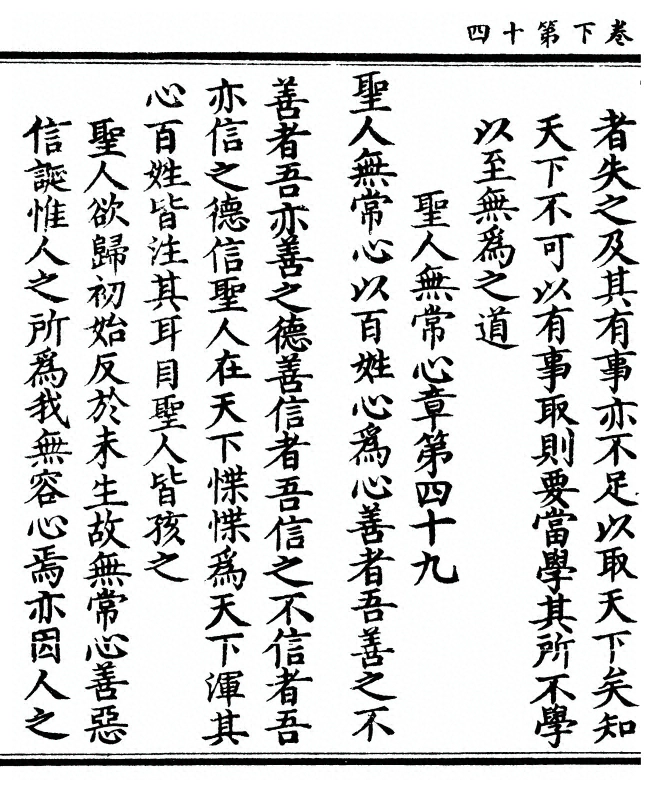 卷下第十四
者失之及其有事亦不足以取天下矣知
天下不可以有事取則要當學其所不學
以至無爲之道
聖人無常心章第四十九
聖人無常心以百姓心爲心善者吾善之不
善者吾亦善之德善信者吾信之不信者吾
亦信之德信聖人在天下惵惵爲天下渾其
心百姓皆注其耳目聖人皆孩之
聖人欲歸初始反於未生故無常心善惡
信誕惟人之所爲我無容心焉亦因人之